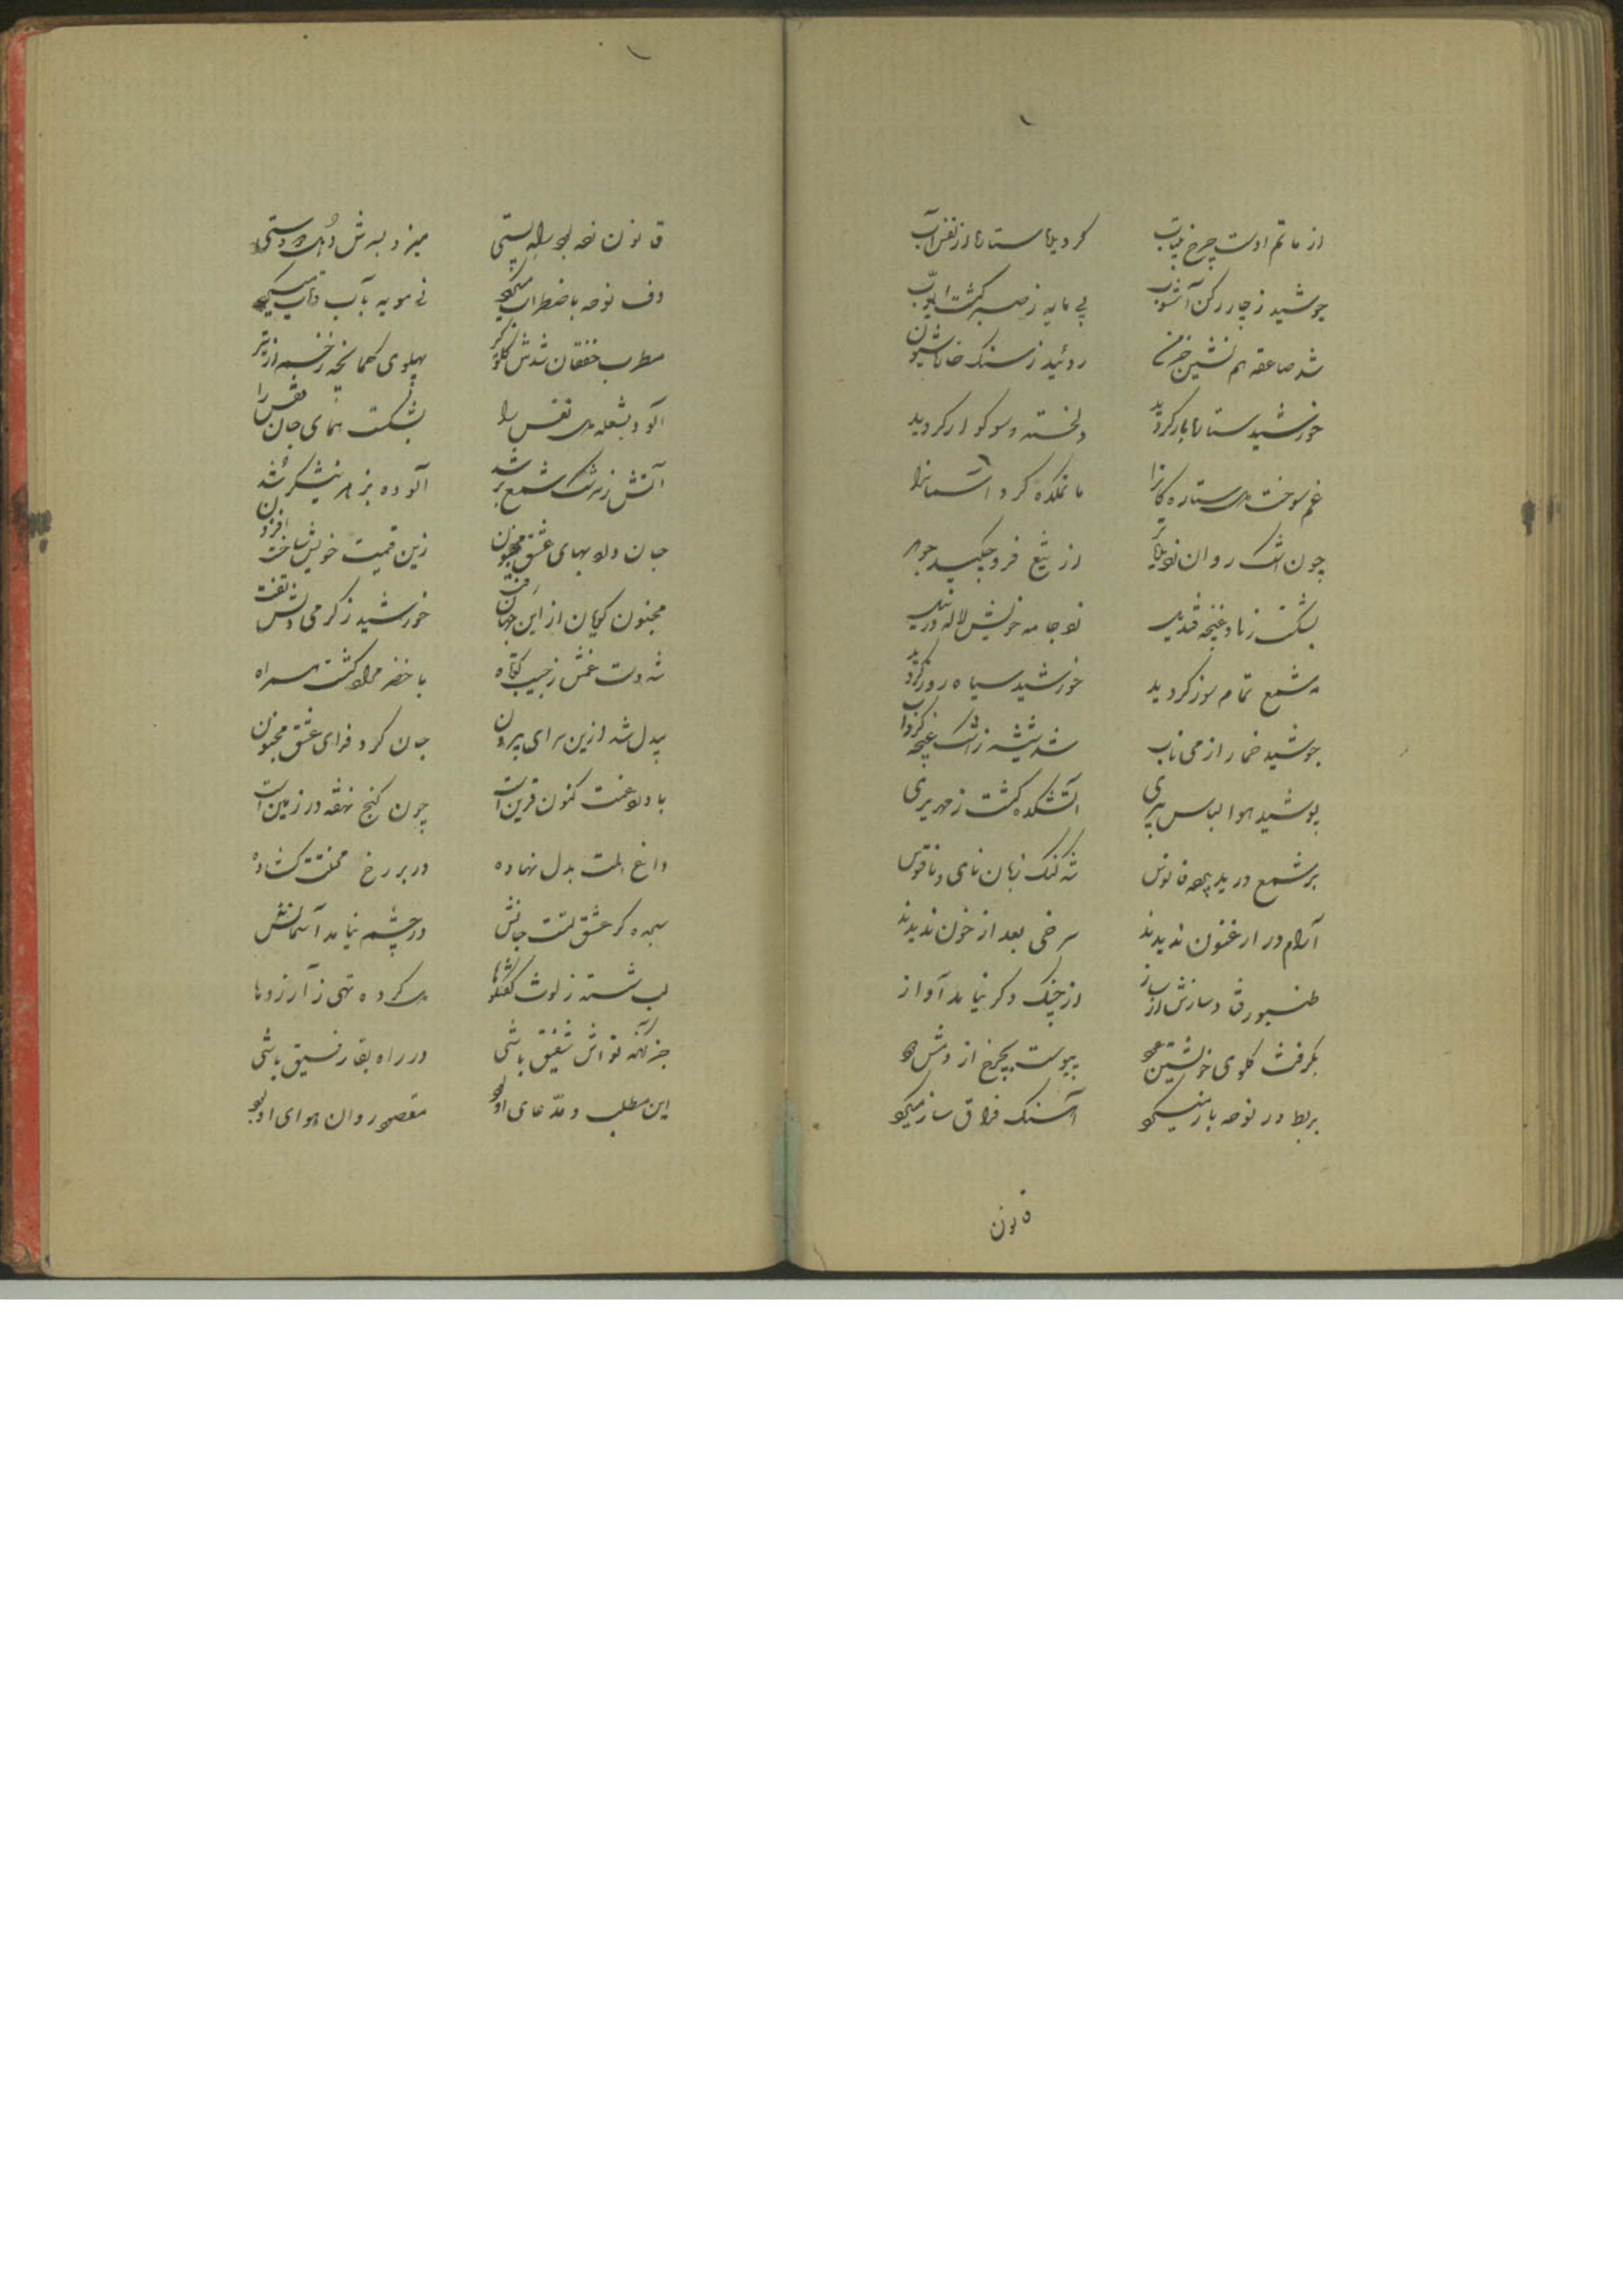 از ماتم اوست چرخ بیتاب گردید ستاره از نفس آب
جوشید ز چار رکن آشوب بی مایه ز صبر گشت ایوب
شد صاعقه هم نشین خرمن روئید ز سنک خاره شیون
خورشید ستاره بار گردید دلخسته و سوکوار گردید
غم سوخت دل ستاره کانرا ماتمکده کرد آسمانرا
چون اشک روان از تیغ فرو چکید جوهر
بشکست غنچه جامه خویش لاله درید
شمع تمام سوز گردید خورشید سیاه روز گردید
جوشید خمار از می ناب شد شیشه ز اشک غنچه
پوشید هوا لباس پیری آتشکده گشت زمهریری
بر شمع درید پرده فانوس شد کنک زبان نای و ناقوس
آرام در ارغنون ندیدند سرخی بعد از خون ندیدند
طنبور از ساز از چنک دکر نیامد آواز
بکرفت کلوی خویشتن عود پیوست بچرخ از دمش دود
بربط در نوحه باز میکرد آهنک فراق ساز میکرد
قانون
قانون میزد بسرش دو دستی
دف نوحه باضطراب میکرد نی مویه بآب و تاب میکرد
مطرب خفقان شدش کلوکیر پهلوی کمانچه زخمه از تیر
آلود بشعله نفس را بشکست همای جان قفس را
آتش ز سرشک شمع تر شد آلوده بزهر نیشکر شد
جان داد بهای عشق مجنون زین قیمت خویش ساخت افزون
مجنون کویان از این جهان رفت خورشید ز گرمی دلش تفت
شد دست غمش ز جیب کوتاه با خضر مراد گشت همراه
بیدل شد ازین سرای بیرون جان کرد فدای عشق مجنون
با درد و غمت کنون قرین است چون کنج نهفته در زمین است
داغ المت بدل نهاده در بر رخ محنتت کشاده
سپرده گر عشق تست جانش در چشم نیامد آسمانش
لب شسته ز لوث گفتگوها دل کرده تهی ز آرزوها
جز آنکه تواش شفیق باشی در راه بقا رفیق باشی
این مطلب و مدّعای او بود مقصود روان هوای او بود